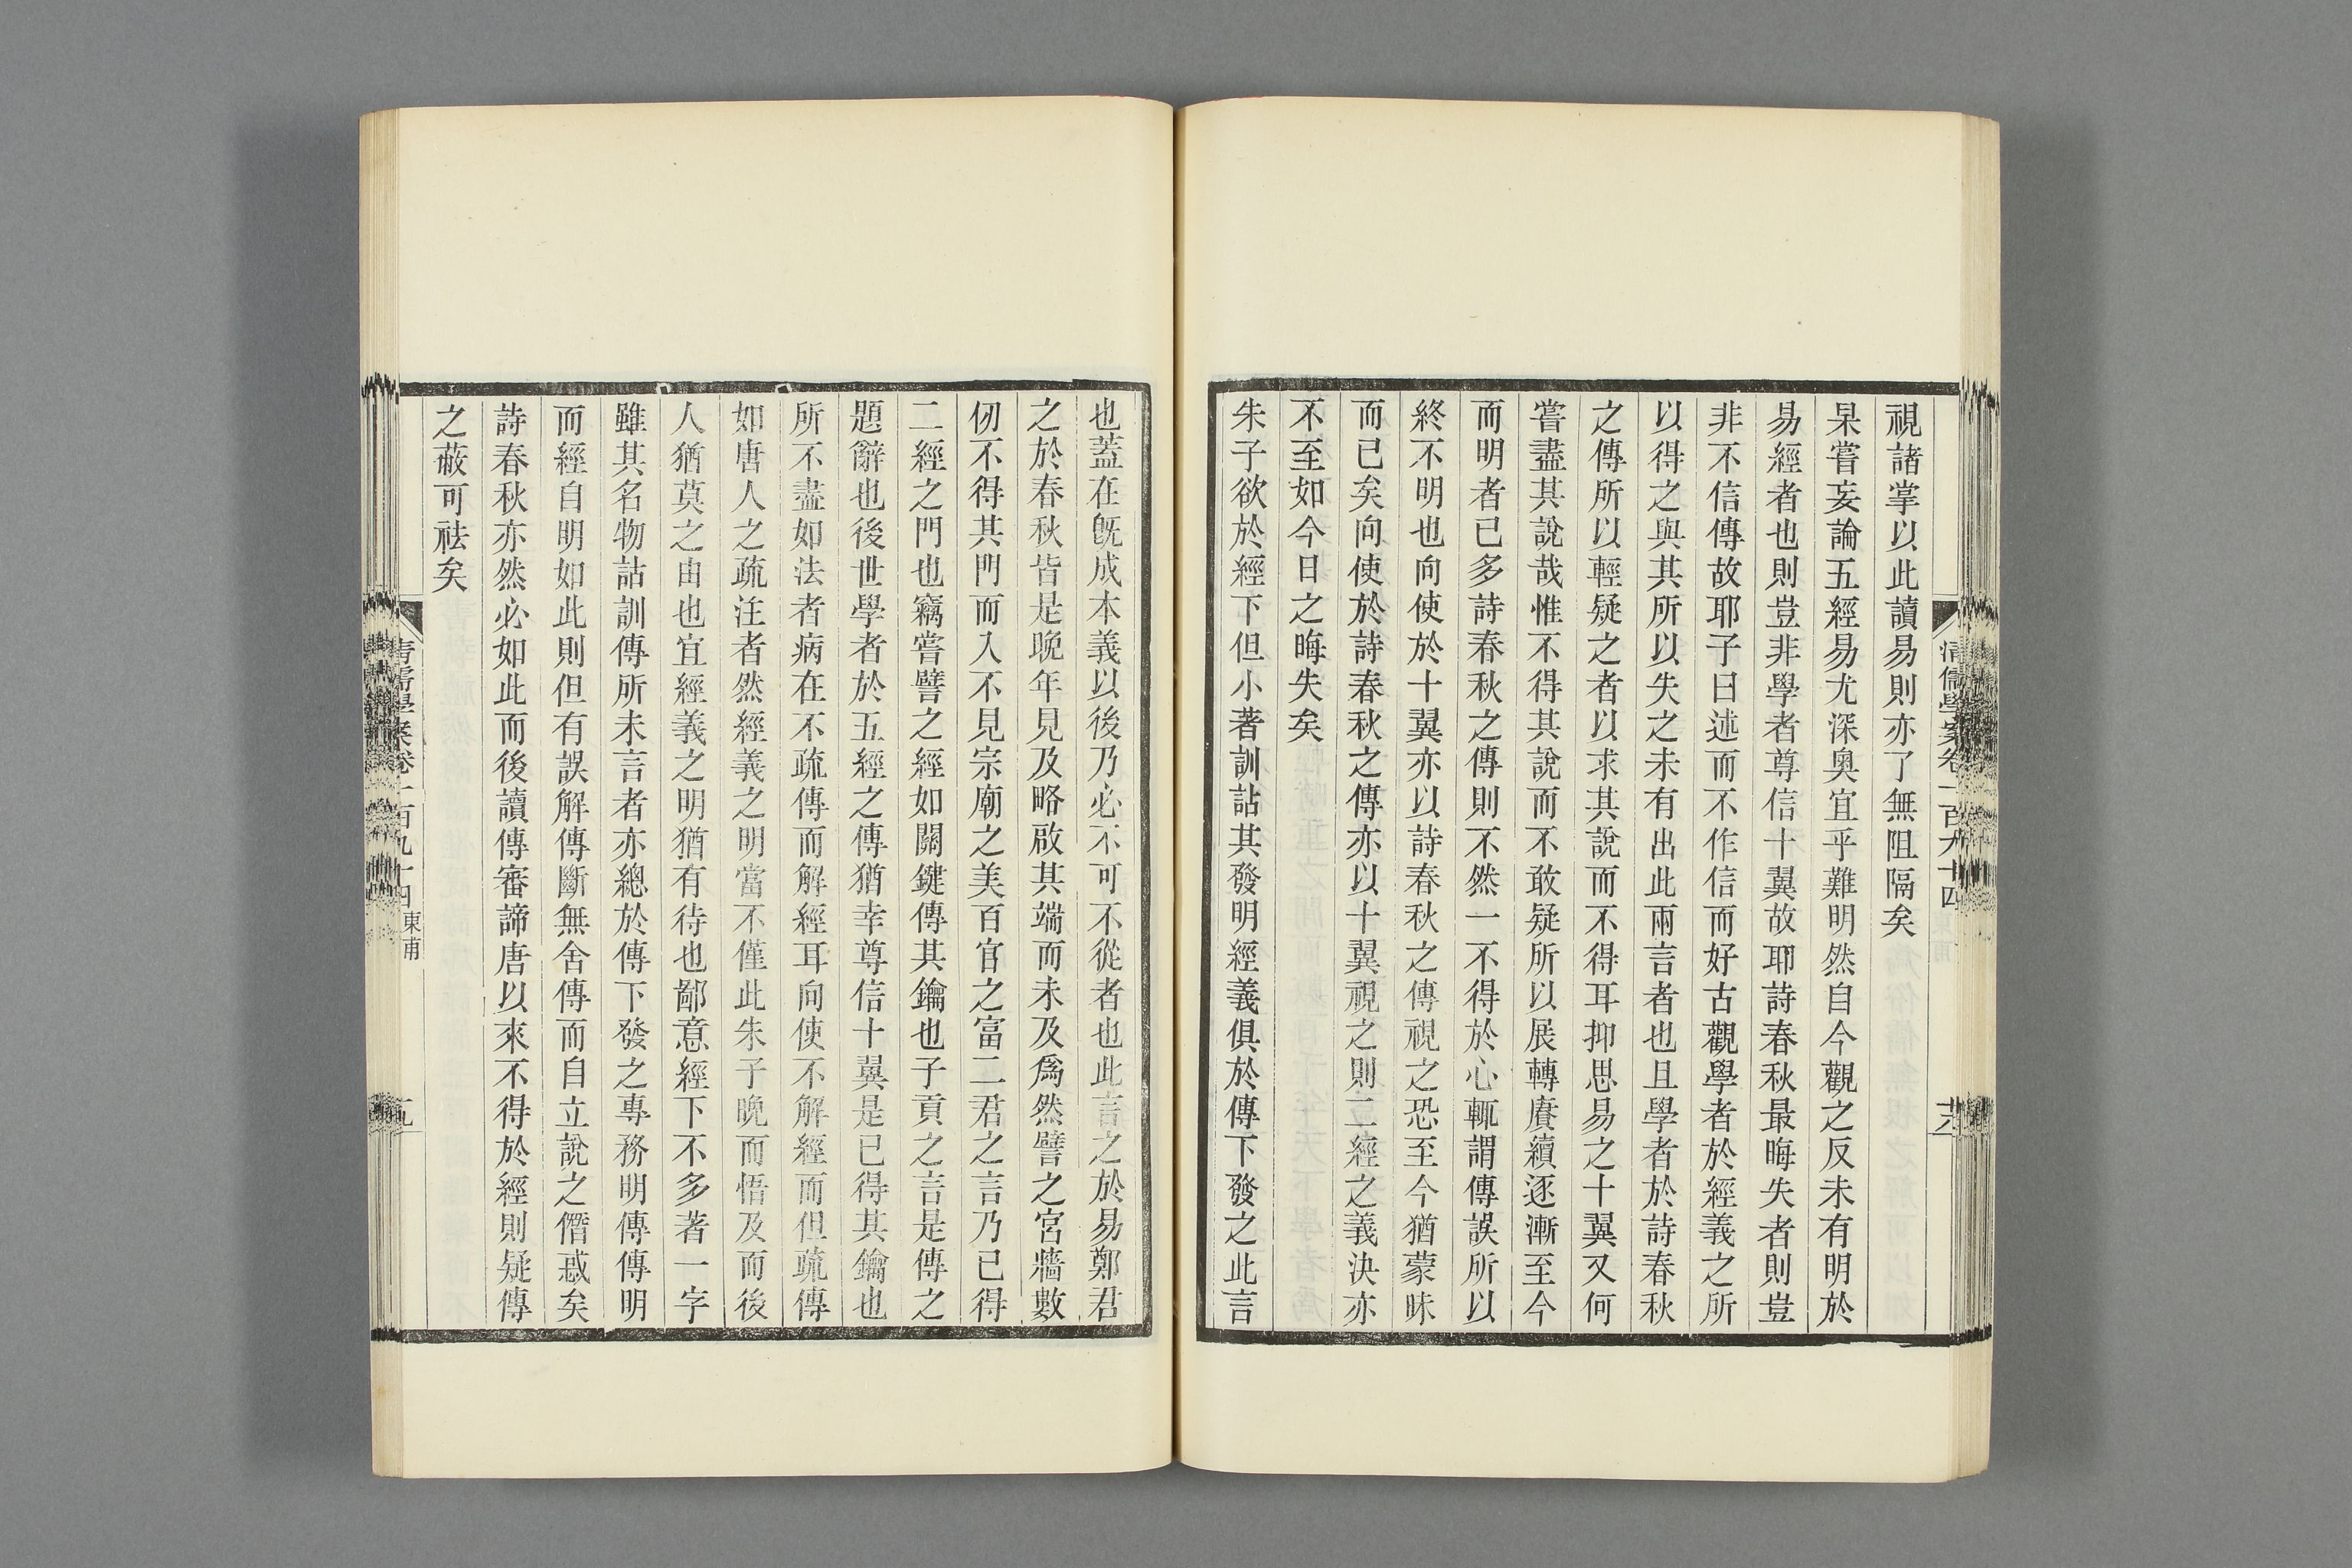 視諸掌以此讀易則亦了無阻隔矣
杲嘗妄論五經易尤深奧宜乎難明然自今觀之反未有明於
易經者也則豈非學者尊信十翼故耶詩春秋最晦失者則豈
非不信傳故耶子曰述而不作信而好古觀學者於經義之所
以得之與其所以失之未有出此兩言者也且學者於詩春秋
之傳所以輕疑之者以求其說而不得耳抑思易之十翼又何
嘗盡其說哉惟不得其說而不敢疑所以展轉賡續逐漸至今
而明者已多詩春秋之傳則不然一不得於心輒謂傳誤所以
終不明也向使於十翼亦以詩春秋之傳視之恐至今猶蒙昧
而已矣向使於詩春秋之傳亦以十翼視之則二經之義決亦
不至如今日之晦失矣
朱子欲於經下但小著訓詁其發明經義俱於傳下發之此言
也蓋在既成本義以後乃必不可不從者也此言之於易鄭君
之於春秋皆是晚年見及略啟其端而未及爲然譬之宮牆數
仞不得其門而入不見宗廟之美百官之富二君之言乃已得
二經之門也竊嘗譬之經如關鍵傳其鑰也子貢之言是傳之
題辭也後世學者於五經之傳猶幸尊信十翼是已得其鑰也
所不盡如法者病在不疏傳而解經耳向使不解經而但疏傳
如唐人之疏注者然經義之明當不僅此朱子晚而悟及而後
人猶莫之由也宜經義之明猶有待也鄙意經下不多著一字
雖其名物詁訓傳所未言者亦總於傳下發之專務明傳傳明
而經自明如此則但有誤解傳斷無舍傳而自立說之僭惑矣
詩春秋亦然必如此而後讀傳審諦唐以來不得於經則疑傳
之蔽可祛矣
清儒學案卷一百九十四
東甫